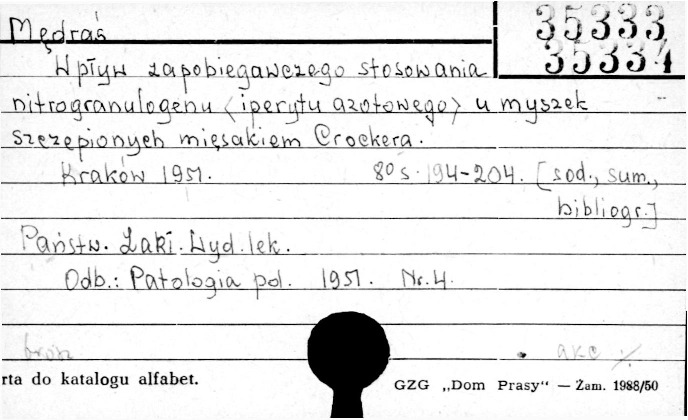 Mędraś
35333
35334
Wpływ zapobiegawczego stosowania
nitrogranulogenu <iperytu azotowego> u myszek
szczepionych mięsakiem Crockera.
Kraków 1951. 8° s. 194-204. [sod., sum.,
bibliogr.]
Państw. Zakł. Wyd. lek.
Odb.: Patologia pol. 1951. Nr. 4.
brosz akc %
rta do katalogu alfabet.
GZG „Dom Prasy“ — Żam. 1988/50